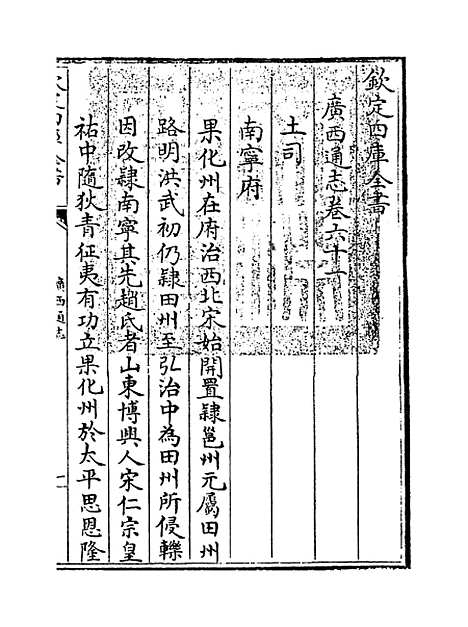 欽定四庫全書
廣西通志卷六十一
土司
南寧府
果化州在府治西北宋始開置隸邕州元屬田州
路明洪武初仍隸田州至弘治中為田州所侵轢
因改隸南寧其先趙氏者山東博興人宋仁宗皇
祐中隨狄青征夷有功立果化州於太平思恩隆
欽定四庫全書
廣西通志
一